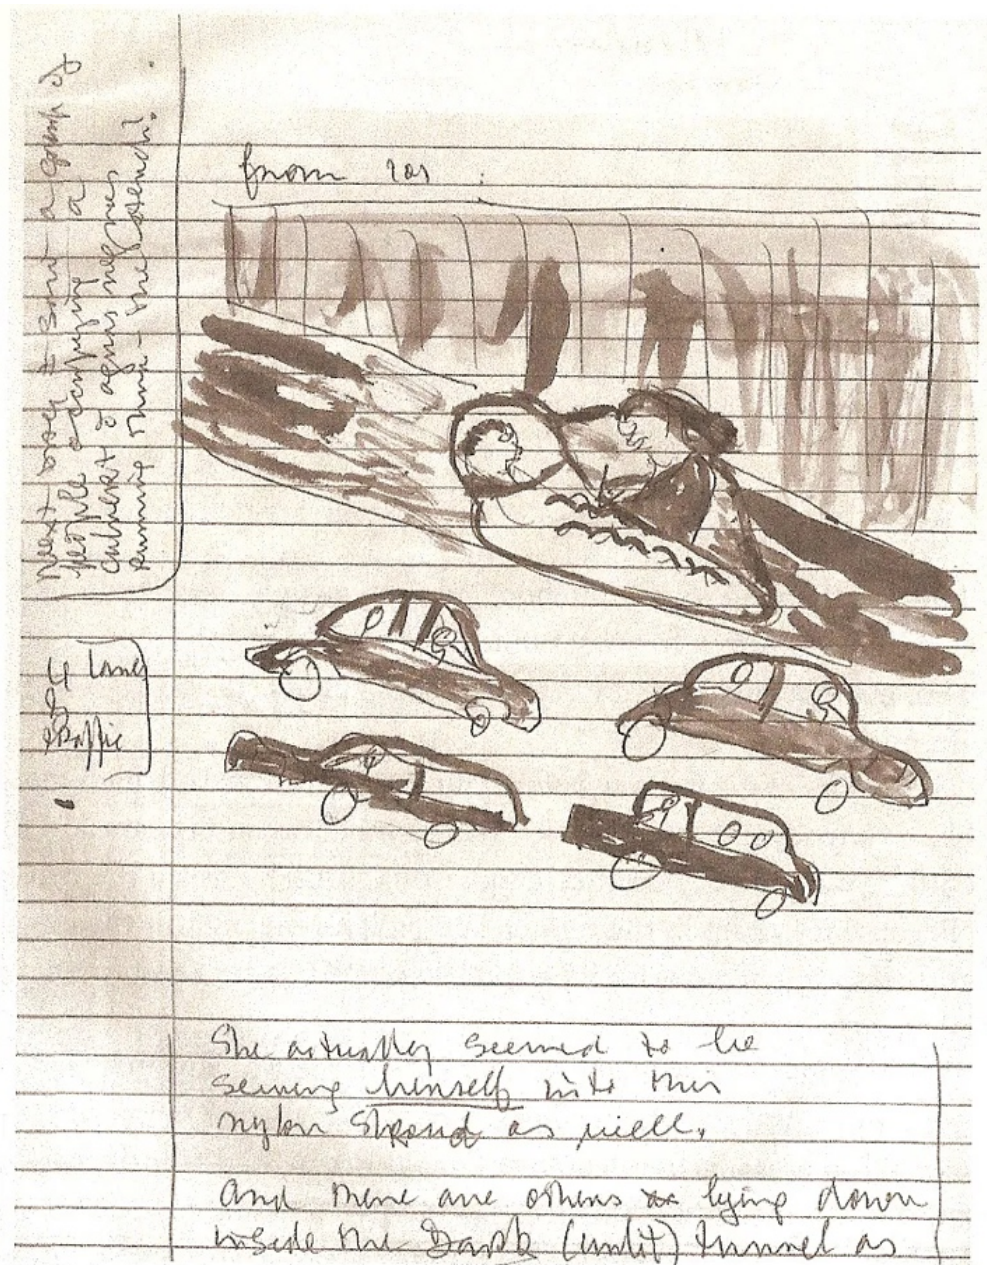 from
Next I saw a group of
people occupying a
culvert
running the
Lane
traffic
She actually seemed to be
sewing herself into this
nylon Shroud as well,
and there are others lying down
inside the Dark (unlit) tunnel as